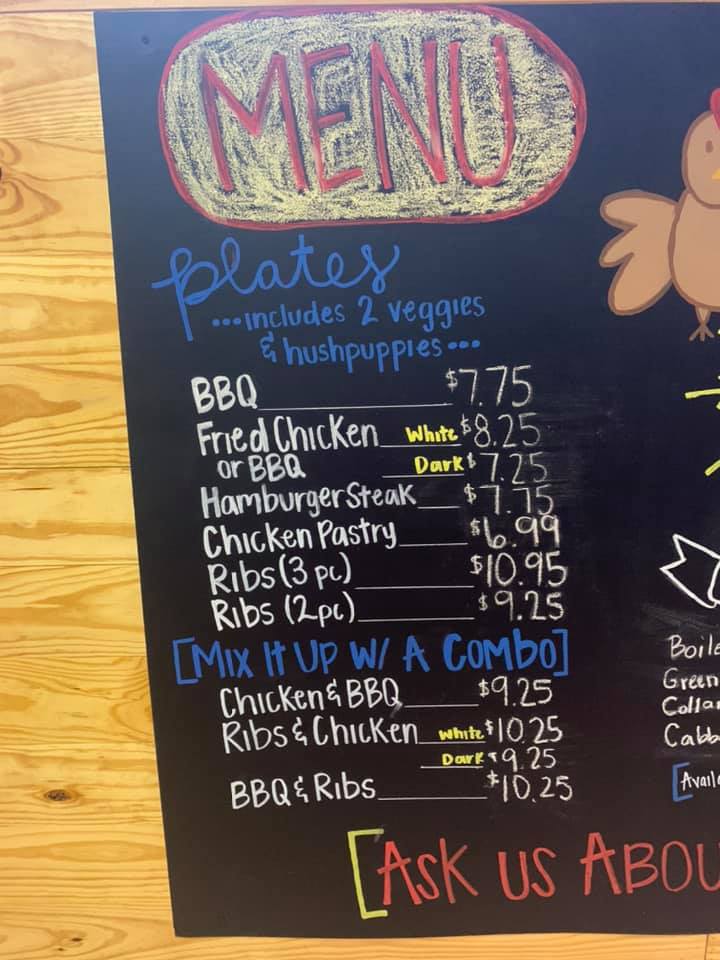 MENU
plates
...includes 2 veggies
& hushpuppies...
BBQ $7.75
Fried Chicken White $8.25
or BBQ Dark $7.25
Hamburger Steak $7.75
Chicken Pastry $6.99
Ribs (3 pc) $10.95
Ribs (2pc) $9.25
[Mix It Up W/ A Combo]
Chicken & BBQ $9.25
Ribs & Chicken White $10.25
Dark $9.25
BBQ & Ribs $10.25
Boile
Green
Colla
Cabb
[Avail
[Ask us Abou